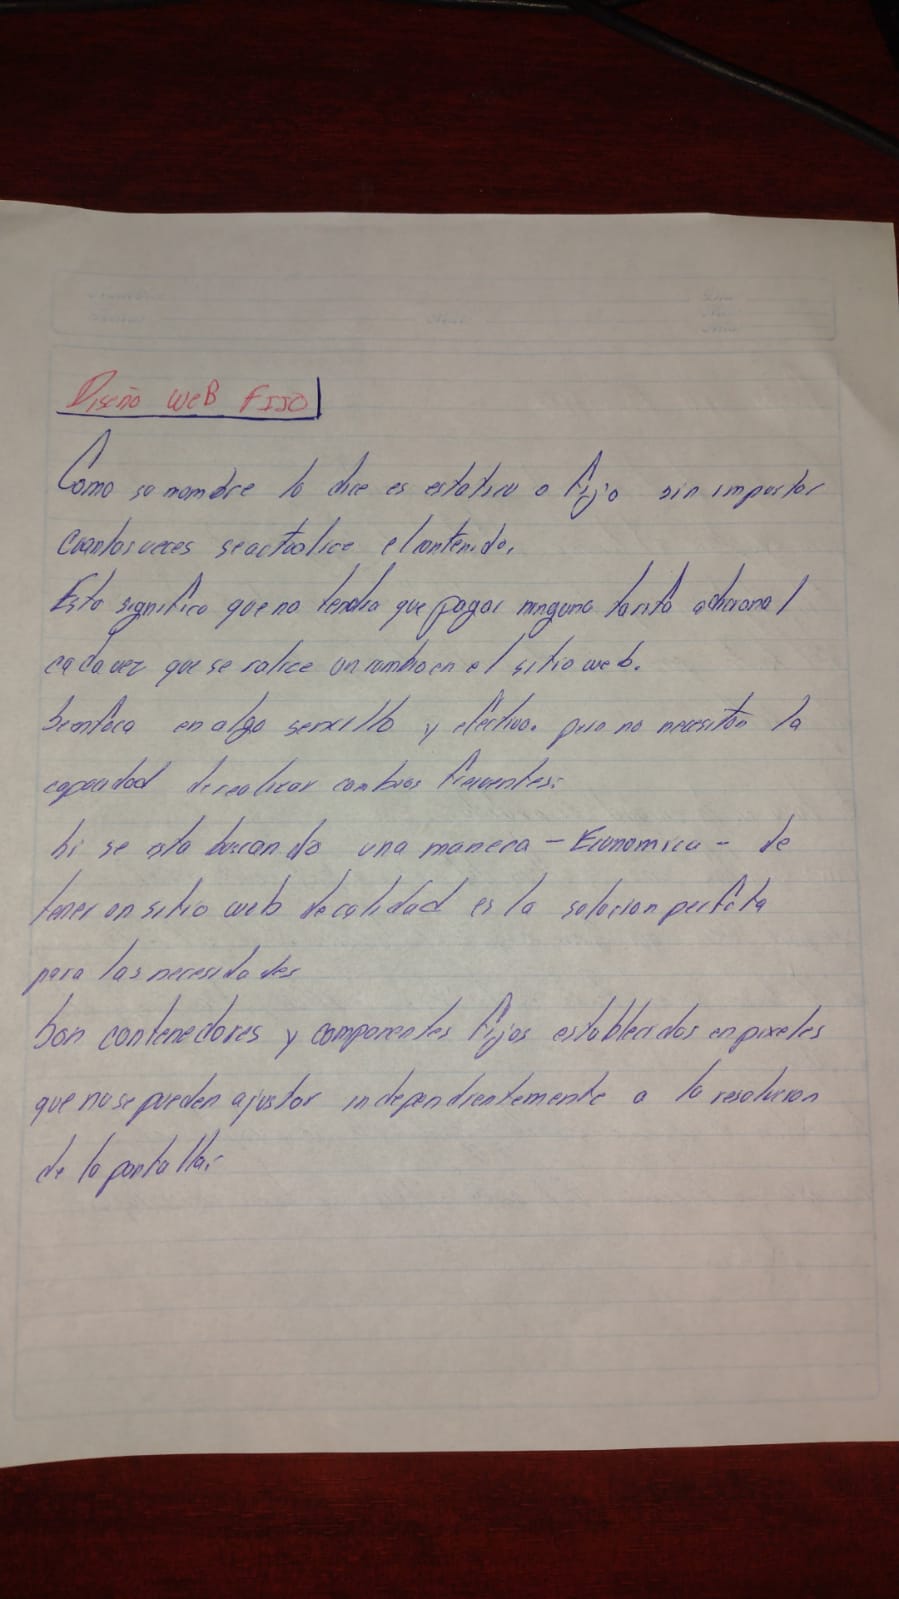 Diseño web fijo
Como su nombre lo dice es estatico o fijo sin importar
cuantas veces se actualice el contenido.
Esto significa que no tendra que pagar ninguna tarifa adicional
cada vez que se ralice un cambio en el sitio web.
Se enfoca en algo sencillo y efectivo. pero no necesitan la
capacidad de realizar cambios frecuentes.
Si se esta buscando una manera - Economica - de
tener un sitio web de calidad es la solucion perfecta
para las necesidades
Son contenedores y componentes fijos establecidos en pixeles
que no se pueden ajustar independientemente a la resolucion
de la pantalla.